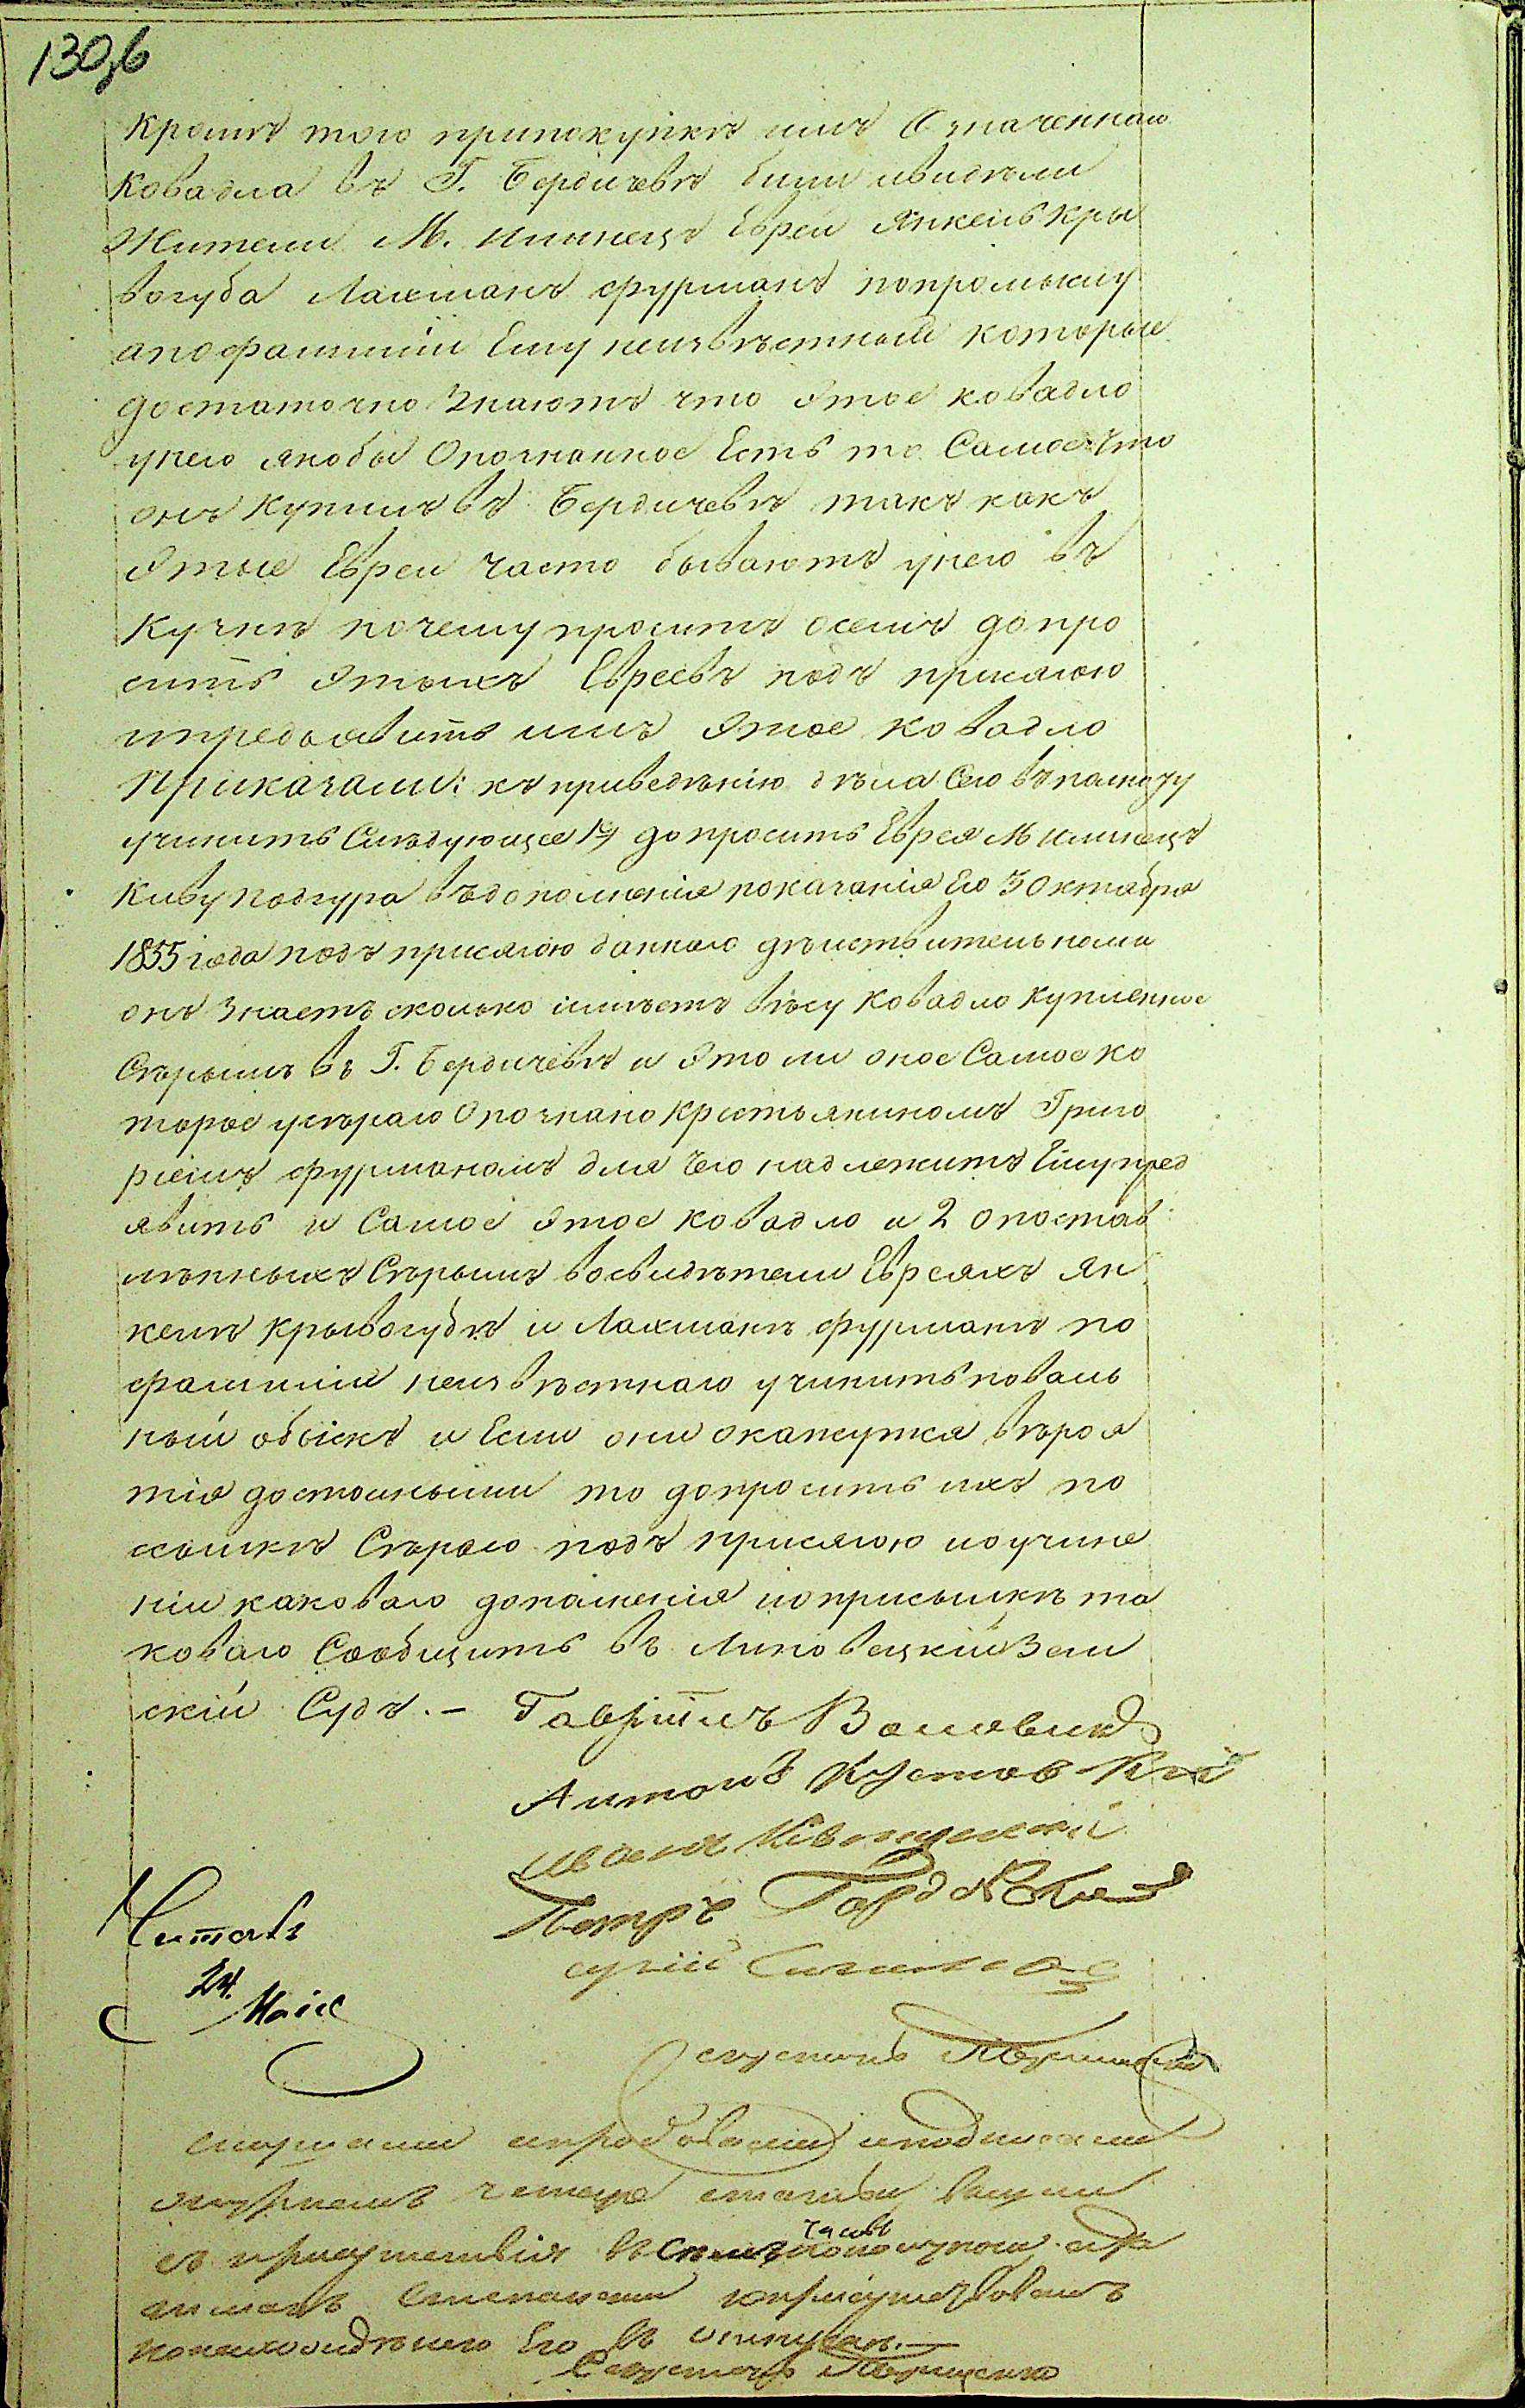 130,6
Кромѣ того припокупкѣ имъ Означеннаго
Ковадла въ Г. Бердичевѣ были ивидѣли
Жители М. Илинецъ Евреи Янкель Кры
вогуба Лахманъ фурманъ попромыслу
апофамиліи Ему неизвѣстный которые
достаточно Знаютъ что Этое ковадло
унего якобы Опознанное Есть то Самое что
онъ Купилъ въ Бердичевѣ такъ какъ
Этые Евреи часто бываютъ унего въ
Кузнѣ почему проситъ осемъ допро
сить Этыхъ Евреевъ подъ присягою
ипредъявить имъ Этое ковадло
Приказали: къ приведѣнію дѣла Сего въполноту
учинить Слѣдующее 1е допросить Еврея М Илинецъ
Киву Подгура въдополненія показанія Его 3 Октября
1855 года подъ присягою даннаго дѣиствительноли
онъ Знаетъ сколько імѣетъ вѣсу Ковадло Купленное
Сѣрымъ въ Г. Бердичевѣ и Этоли оное Самое ко
торое усѣраго Опознано Крестьяниномъ Григо
ріемъ фурманомъ для чего надлежитъ Ему пред
явить и Самое Этое ковадло и 2 опостав
лѣнныхъ Сѣрымъ восвидѣтели Евреяхъ Ян
келѣ Крывогубѣ и Лахманѣ фурманѣ по
фамиліи неизвѣстнаго учинить поваль
ный обыскъ и Если они окажутся вѣроя
тія достойными то допросить ихъ по
ссылкѣ Сѣраго подъ присягою поучине
ніи каковаго дополненія иоприсылкѣ та
коваго Сообщить въ Липовецкій Зем
скій Судъ. –
Гавріилъ
Антонъ
Иванъ
Петръ
Читалъ
24.
Маія
Слушали ипродовали иподписали
журналъ четыре статьи вышли
съ присутствія въ часовъ
Его въ отпускъ. —